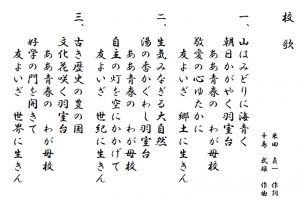 校歌
米田貞一 作詞
千島武雄 作曲
一、山はみどりに海青く
朝日かがやく羽室台
敬愛の心ゆたかに
ああ青春の わが母校
友よいざ 郷土に生きん
二、生気みなぎる大自然
湯の香かぐわし羽室台
自主の灯を空にかかげて
ああ青春の わが母校
友よいざ 世紀に生きん
三、古き歴史の豊の国
文化花咲く羽室台
ああ青春の わが母校
好学の門を開きて
友よいざ 世界に生きん